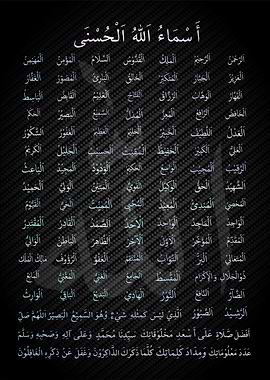 أَسْمَاءُ اللهِ الْحُسْنَى
الرَّحْمٰنُ الرَّحِيْمُ الْمَلِكُ الْقُدُّوْسُ السَّلَامُ الْمُؤْمِنُ الْمُهَيْمِنُ
الْعَزِيْزُ الْجَبَّارُ الْمُتَكَبِّرُ الْخَالِقُ الْبَارِئُ الْمُصَوِّرُ الْغَفَّارُ
الْقَهَّارُ الْوَهَّابُ الرَّزَّاقُ الْفَتَّاحُ الْعَلِيْمُ الْقَابِضُ الْبَاسِطُ
الْخَافِضُ الرَّافِعُ الْمُعِزُّ الْمُذِلُّ السَّمِيْعُ الْبَصِيْرُ الْحَكَمُ
الْعَدْلُ اللَّطِيْفُ الْخَبِيْرُ الْحَلِيْمُ الْعَظِيْمُ الْغَفُوْرُ الشَّكُوْرُ
الْعَلِيُّ الْكَبِيْرُ الْحَفِيْظُ الْمُقِيْتُ الْحَسِيْبُ الْجَلِيْلُ الْكَرِيْمُ
الرَّقِيْبُ الْمُجِيْبُ الْوَاسِعُ الْحَكِيْمُ الْوَدُوْدُ الْمَجِيْدُ الْبَاعِثُ
الشَّهِيْدُ الْحَقُّ الْوَكِيْلُ الْقَوِيُّ الْمَتِيْنُ الْوَلِيُّ الْحَمِيْدُ
الْمُحْصِي الْمُبْدِئُ الْمُعِيْدُ الْمُحْيِي الْمُمِيْتُ الْحَيُّ الْقَيُّوْمُ
الْوَاجِدُ الْمَاجِدُ الْوَاحِدُ الْأَحَدُ الصَّمَدُ الْقَادِرُ الْمُقْتَدِرُ
الْمُقَدِّمُ الْمُؤَخِّرُ الْأَوَّلُ الْآخِرُ الظَّاهِرُ الْبَاطِنُ الْوَالِي
الْمُتَعَالِي الْبَرُّ التَّوَّابُ الْمُنْتَقِمُ الْعَفُوُّ الرَّؤُوْفُ مَالِكُ الْمُلْكِ
ذُوالْجَلَالِ وَالْإِكْرَامِ الْمُقْسِطُ الْجَامِعُ الْغَنِيُّ الْمُغْنِيُّ الْمَانِعُ
الضَّآرُّ النَّافِعُ النُّوْرُ الْهَادِي الْبَدِيْعُ الْبَاقِي الْوَارِثُ
الرَّشِيْدُ الصَّبُوْرُ الَّذِيْ لَيْسَ كَمِثْلِهِ شَيْءٌ وَّهُوَ السَّمِيْعُ الْبَصِيْرُ اَللّٰهُمَّ صَلِّ
أَفْضَلَ صَلَاةٍ عَلَى أَسْعَدِ مَخْلُوْقَاتِكَ سَيِّدِنَا مُحَمَّدٍ وَعَلَى آلِهِ وَصَحْبِهِ وَسَلِّمْ
عَدَدَ مَعْلُوْمَاتِكَ وَمِدَادَ كَلِمَاتِكَ كُلَّمَا ذَكَرَكَ الذَّاكِرُوْنَ وَغَفَلَ عَنْ ذِكْرِهِ الْغَافِلُوْنَ